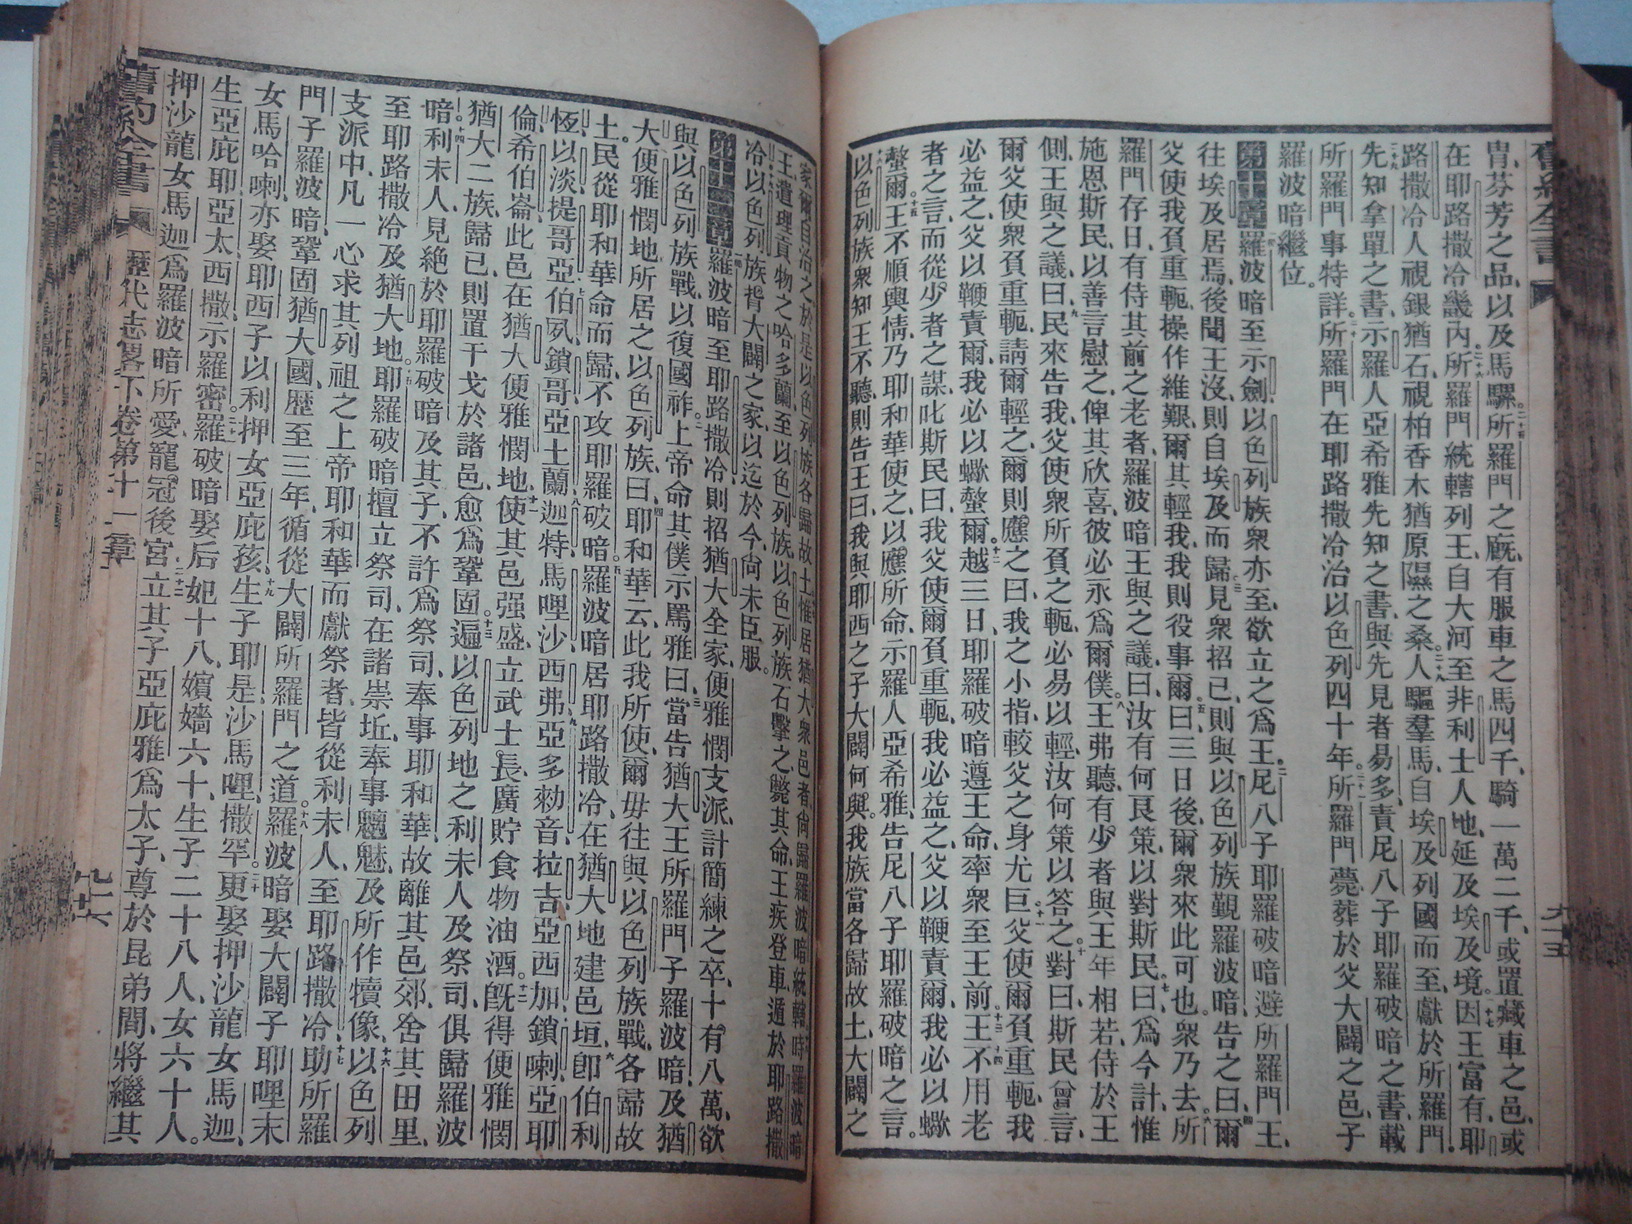 胄芬芳之品以及馬騾所羅門之廐有服車之馬四千騎一萬二千或置藏車之邑或
在耶路撒冷畿內所羅門統轄列王自大河至非利士人地延及埃及境因王富有耶
路撒冷人視銀猶石視柏香木猶原隰之桑人驅羣馬自埃及列國而至獻於所羅門
先知拿單之書示羅人亞希雅先知之書與先見者易多責尼八子耶羅破暗之書載
所羅門事特詳所羅門在耶路撒冷治以色列四十年所羅門薨葬於父大闢之邑子
羅波暗繼位
第十章羅波暗至示劍以色列族衆亦至欲立之爲王尼八子耶羅破暗避所羅門王
往埃及居焉後聞王沒則自埃及而歸見衆招已則與以色列族覲羅波暗告之曰爾
父使我負重軛操作維艱爾其輕我我則役事爾曰三日後爾衆來此可也衆乃去所
羅門存日有侍其前之老者羅波暗王與之議曰汝有何良策以對斯民曰爲今計惟
施恩斯民以善言慰之俾其欣喜彼必永爲爾僕王弗聽有少者與王年相若侍於王
側王與之議曰民來告我父使衆所負之軛必易以輕汝何策以答之對曰斯民曾言
爾父使衆負重軛請爾輕之爾則應之曰我之小指較父之身尤巨父使爾負重軛我
必益之父以鞭責爾我必以蠍螫爾越三日耶羅破暗遵王命率衆至王前王不用老
者之言而從少者之謀叱斯民曰我父使爾負重軛我必益之父以鞭責爾我必以蠍
螫爾王不順輿情乃耶和華使之以應所命示羅人亞希雅告尼八子耶羅破暗之言
以色列族衆知王不聽則告王曰我與耶西之子大闢何與我族當各歸故土大闢之
家爾自治之於是以色列族各歸故土惟居猶大衆邑者尙歸羅波暗統轄時羅波暗
王遣理貢物之哈多蘭至以色列族以色列族石擊之斃其命王疾登車遁於耶路撒
冷以色列族背大闢之家以迄於今尙未臣服
第十一章羅波暗至耶路撒冷則招猶大全家便雅憫支派計簡練之卒十有八萬欲
與以色列族戰以復國祚上帝命其僕示罵雅曰當告猶大王所羅門子羅波暗及猶
大便雅憫地所居之以色列族曰耶和華云此我所使爾毋往與以色列族戰各歸故
土民從耶和華命而歸不攻耶羅破暗羅波暗居耶路撒冷在猶大地建邑垣卽伯利
恆以淡提哥亞伯夙鎖哥亞土蘭迦特馬哩沙西弗亞多勑音拉吉亞西加鎖喇亞耶
倫希伯崙此邑在猶大便雅憫地使其邑强盛立武士長廣貯食物油酒旣得便雅憫
猶大二族歸已則置干戈於諸邑愈爲鞏固遍以色列地之利未人及祭司俱歸羅波
暗利未人見絶於耶羅破暗及其子不許爲祭司奉事耶和華故離其邑郊舍其田里
至耶路撒冷及猶大地耶羅破暗擅立祭司在諸崇坵奉事魑魅及所作犢像以色列
支派中凡一心求其列祖之上帝耶和華而獻祭者皆從利未人至耶路撒冷助所羅
門子羅波暗鞏固猶大國歷至三年循從大闢所羅門之道羅波暗娶大闢子耶哩末
女馬哈喇亦娶耶西子以利押女亞庇孩生子耶是沙馬哩撒罕更娶押沙龍女馬迦
生亞庇耶亞太西撒示羅密羅破暗娶后妃十八嬪嬙六十生子二十八人女六十人
押沙龍女馬迦爲羅波暗所愛寵冠後宮立其子亞庇雅爲太子尊於昆弟間將繼其
舊約全書 歷代志畧下卷第十一章